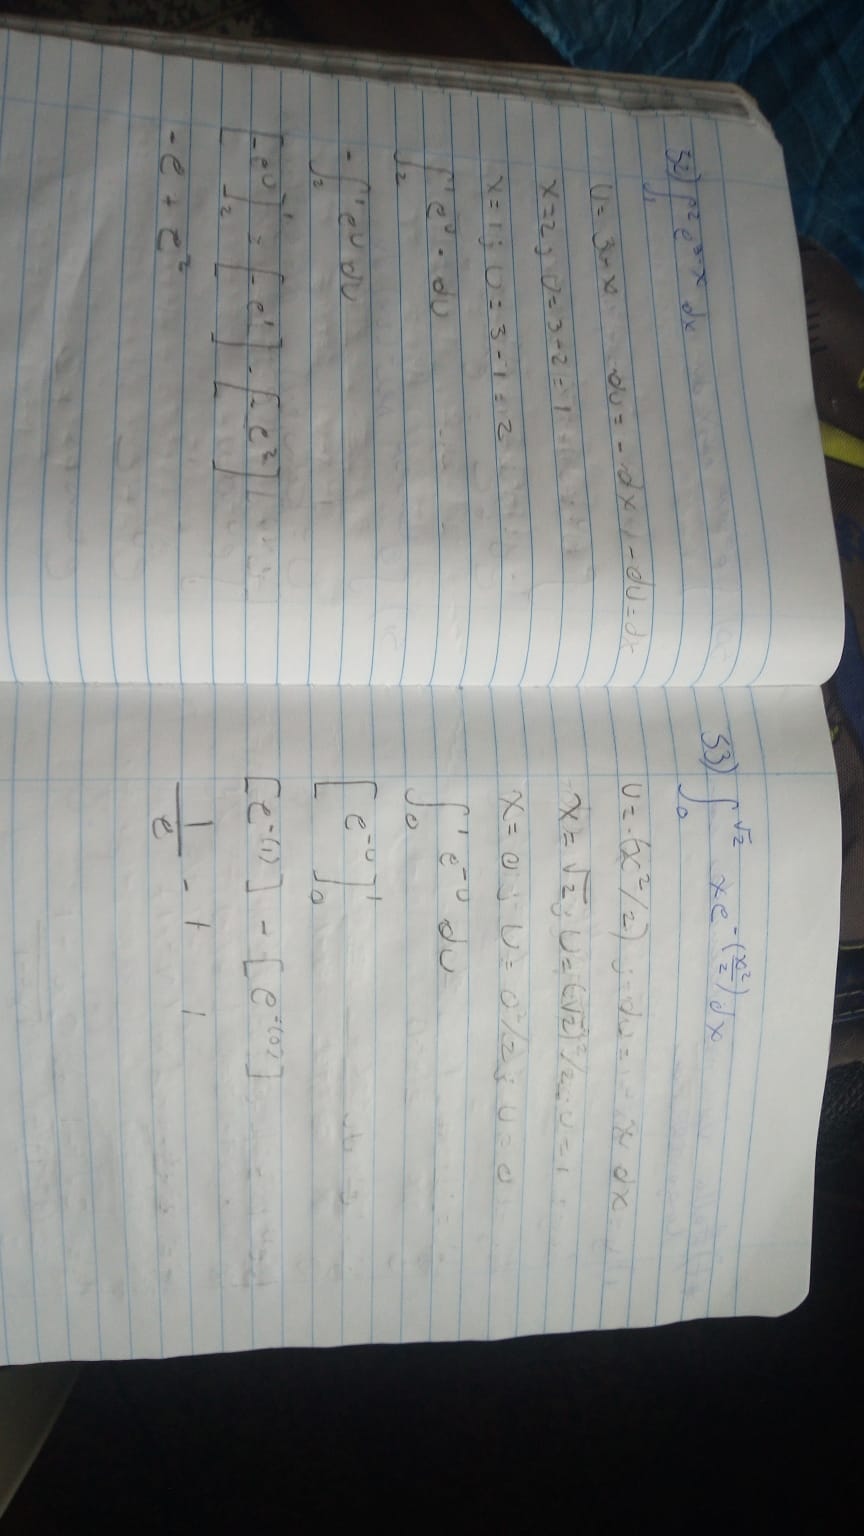 52) ∫₁² e^(3-x) dx
u = 3-x du = - dx , -du = dx
x=2 ; u = 3-2 = 1
x=1 ; u = 3-1 = 2
∫₂¹ e^u · du
- ∫₂¹ e^u du
[-e^u]₂¹ = [-e^1] - [-e^2]
-e + e^2
53) ∫₀^√2 xe^-(x²/2) dx
u = -(x²/2) ; -du = - x dx
x = √2 ; u = (√2)²/2 ; u = 1
x = 0 ; u = 0²/2 ; u = 0
∫₀¹ e^-u du
[e^-u]₀¹
[e^-(1)] - [e^-(0)]
1/e - 1 1